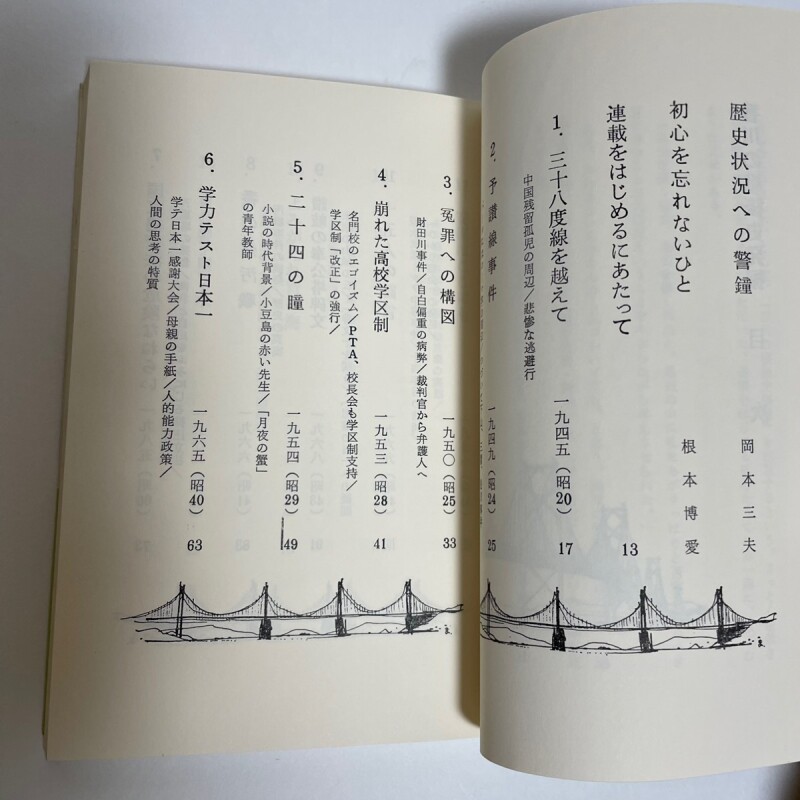 歴史状況への警鐘　岡本三夫
初心を忘れないひと　根本博愛
連載をはじめるにあたって　13
1. 三十八度線を越えて　一九四五（昭20）　17
中国残留孤児の周辺／悲惨な逃避行
2. 予讃線事件　一九四九（昭24）　25
3. 冤罪への構図　一九五〇（昭25）　33
財田川事件／自白偏重の病弊／裁判官から弁護人へ
4. 崩れた高校学区制　一九五三（昭28）　41
名門校のエゴイズム／PTA、校長会も学区制支持／
学区制「改正」の強行／
5. 二十四の瞳　一九五四（昭29）　49
小説の時代背景／小豆島の赤い先生／「月夜の蟹」
の青年教師
6. 学力テスト日本一　一九六五（昭40）　63
学テ日本一感謝大会／母親の手紙／人的能力政策／
人間の思考の特質